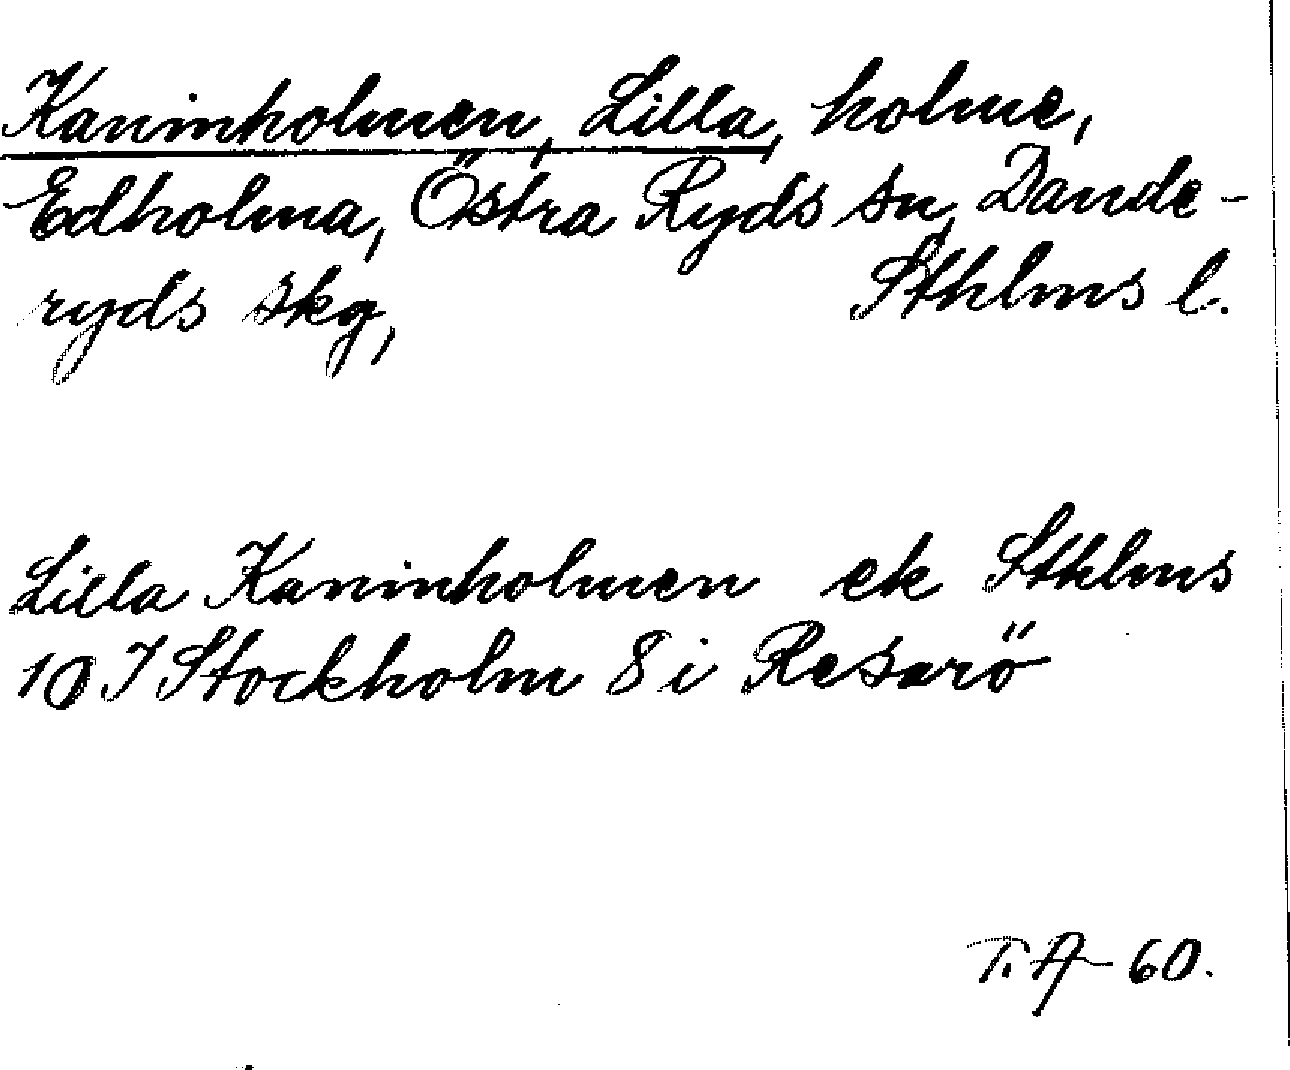 Kaninholmen, Lilla, holme,
Edholma, Östra Ryds sn, Dande-
ryds skg, Sthlms l.
Lilla Kaninholmen ek Sthlms
10 I Stockholm 8 i Resarö
T. A - 60.